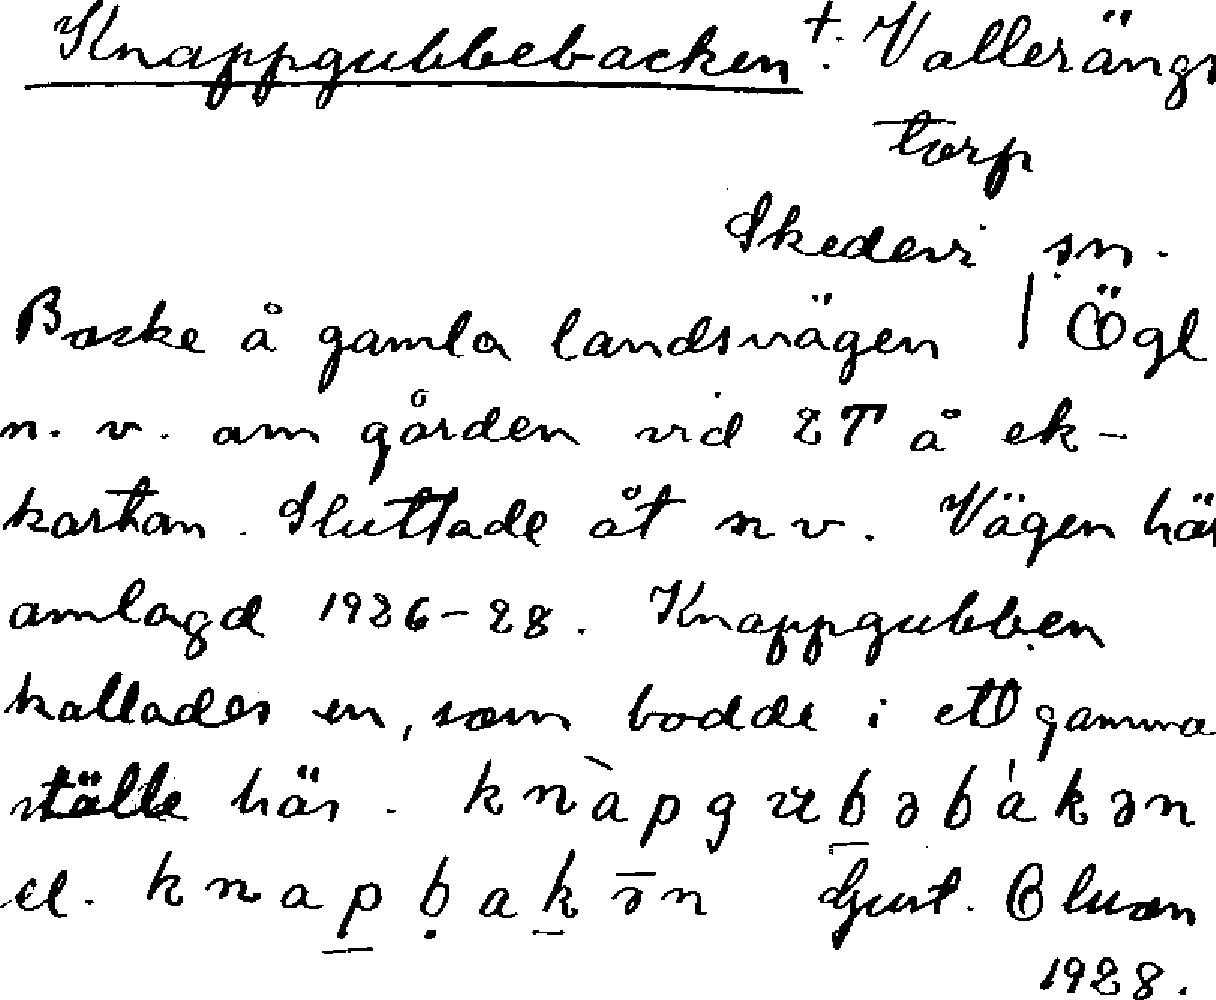 Knappgubbebacken †. Vallerängs
torp
Skedevi sn.
Backe å gamla landsvägen | Ögl
n. v. om gården vid 2T å ek-
kartan. Sluttade åt nv. Vägen här
omlagd 1926-28. Knappgubben
kallades en, som bodde i ett gamma
ställe här. knàpgubəbákən
el. knapbakən Gust. Oluson
1928.